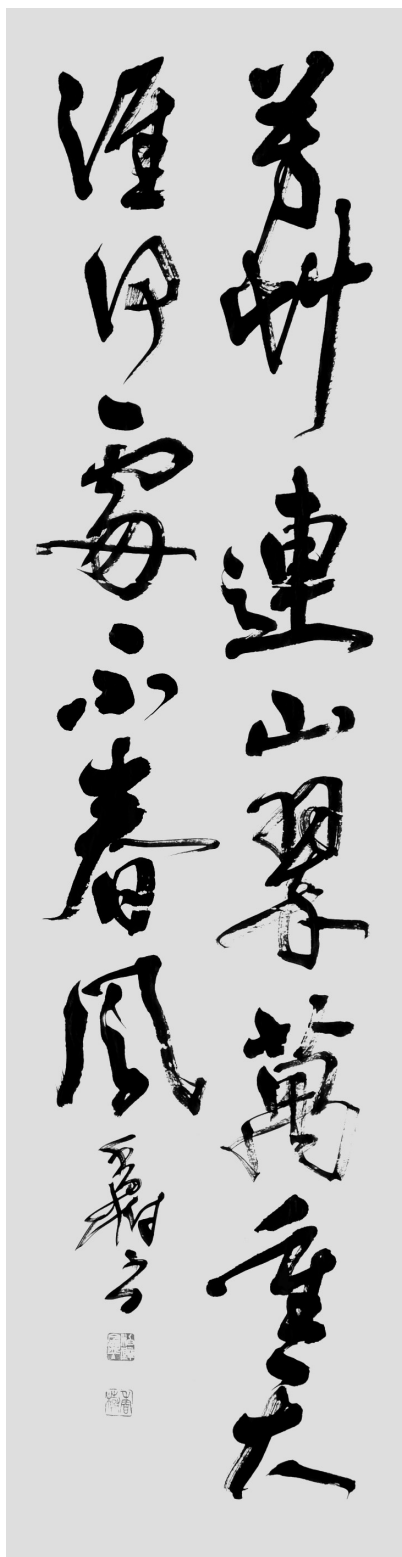 芳艸連山翠萬重大
涯何處不春風